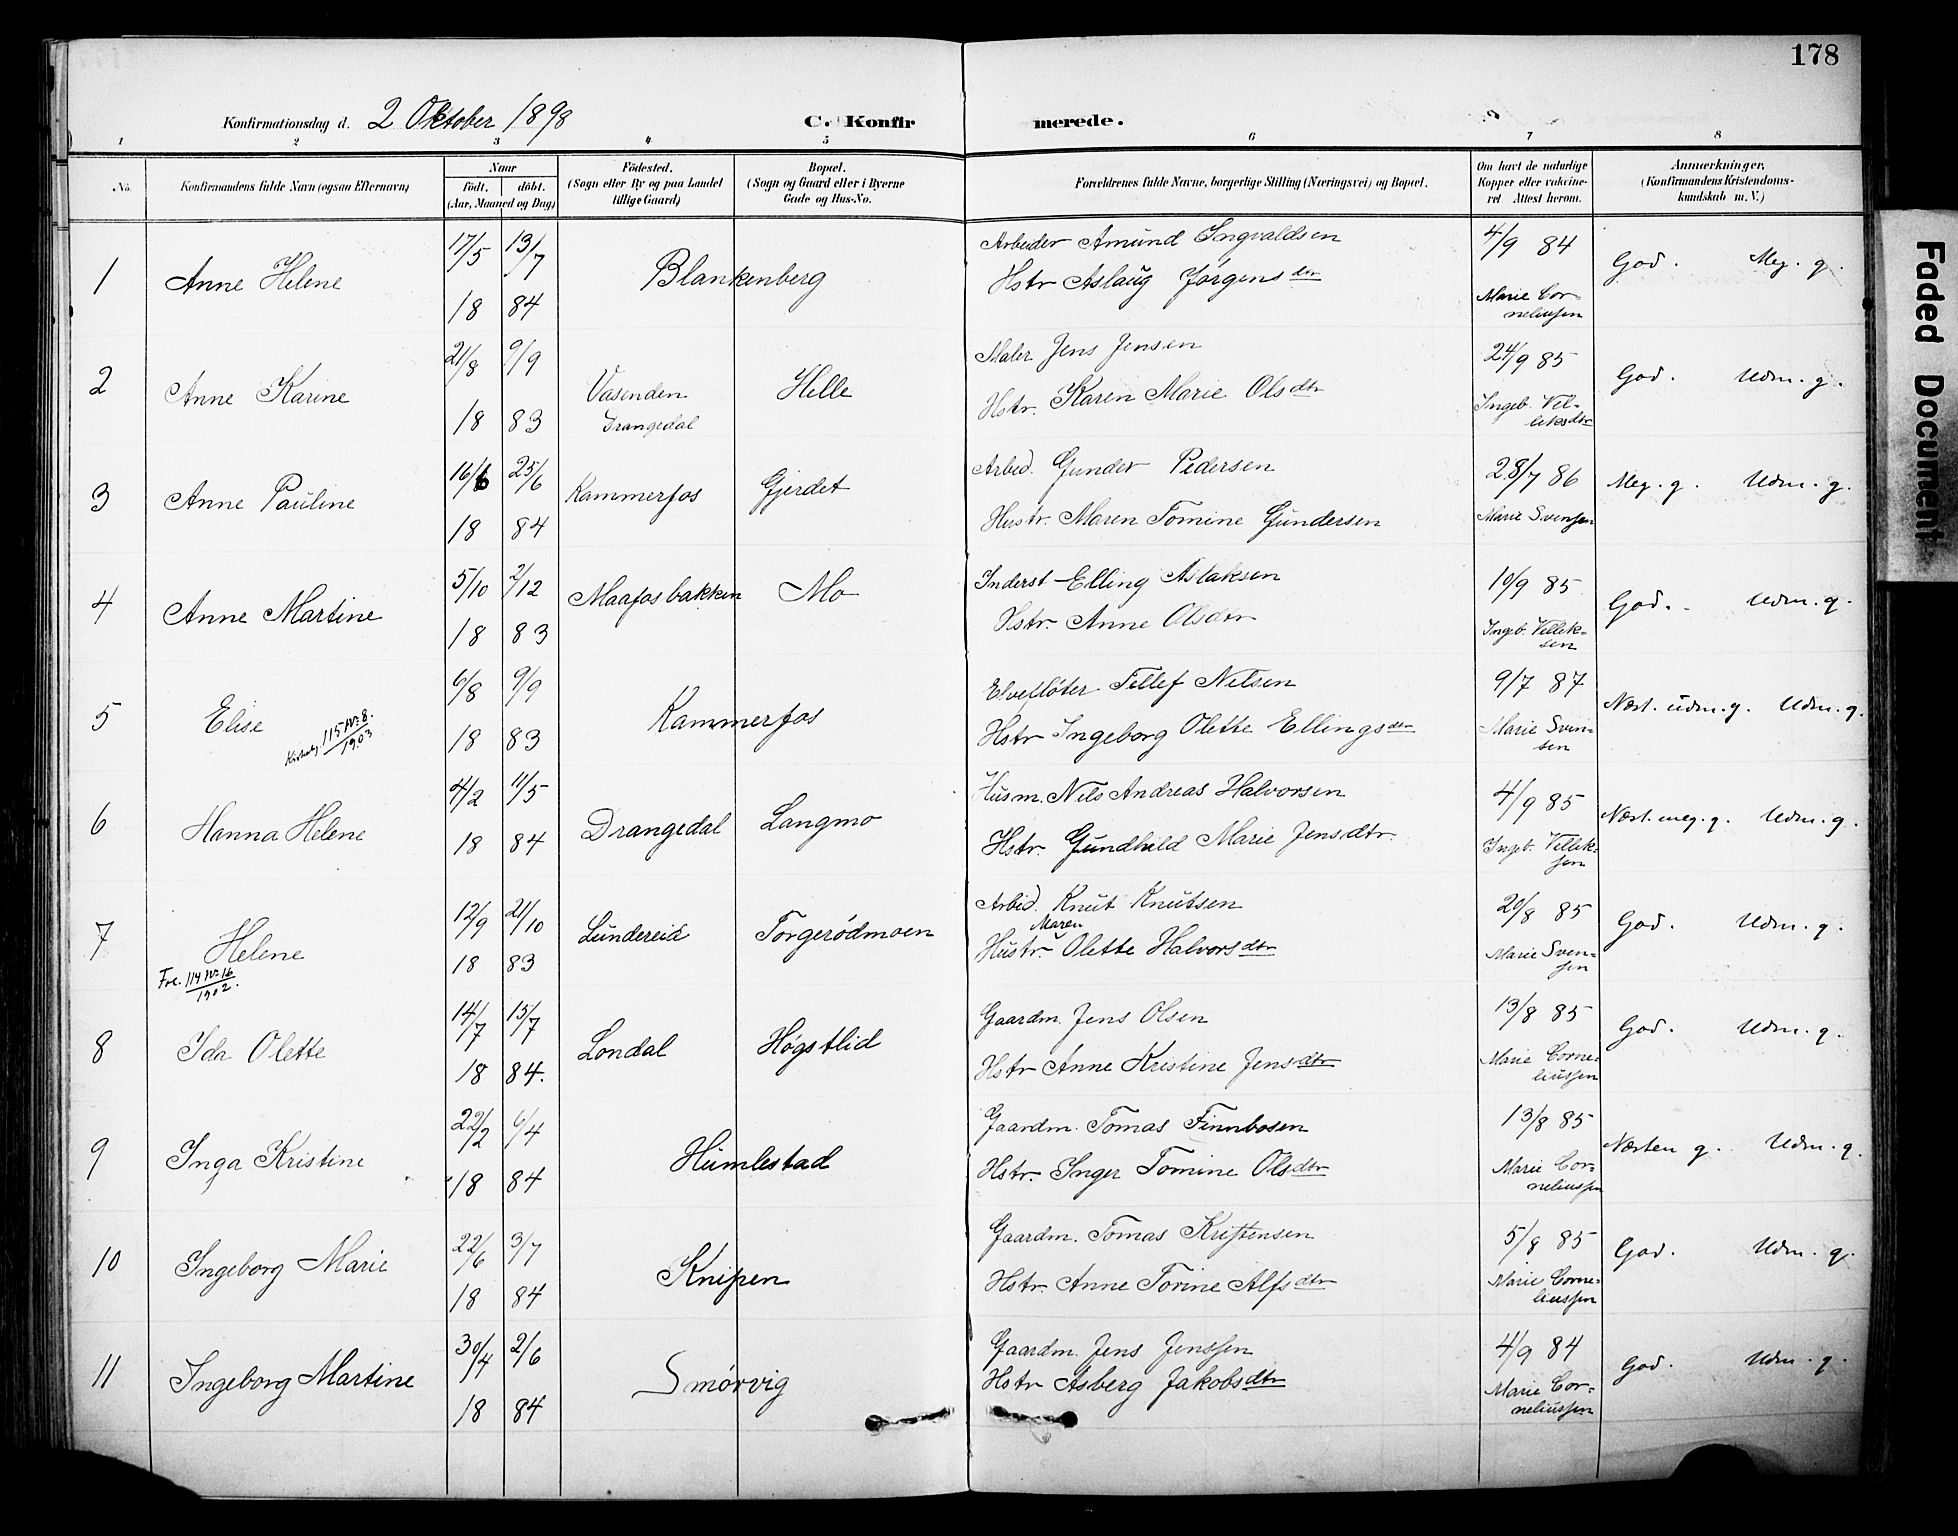 178
Konfirmationsdag d. 2 Oktober 1898 C. Konfirmerede.
1 2 3 4 5 6 7 8
No. Konfirmandens fulde Navn (ogsaa Efternavn) Naar födt. döbt. (Aar, Maaned og Dag) Födested. (Sogn eller By og paa Landet tillige Gaard) Bopæl. (Sogn og Gaard eller i Byerne Gade og Hus-No. Forældrenes fulde Navne, borgerlige Stilling (Næringsvei) og Bopæl. Om havt de naturlige Kopper eller vakcineret Attest herom. Anmærkninger, (Konfirmandens Kristendomskundskab m. V.)
1 Anne Helene 17/5 13/7 18 84 Blankenberg Arbeider Amund Ingvaldsen
Hstr Aslaug Jørgensdtr 4/9 84 Marie Corneliussen God. Meg. g.
2 Anne Karine 21/8 9/9 18 83 Vasenden Drangedal Helle Maler Jens Jensen
Hstr. Karen Marie Olsdtr 24/9 85 Ingeb. Velleksdtr God. Udm. g.
3 Anne Pauline 16/6 25/6 18 84 Kammerfos Gjerdet Arbeid. Gunder Pedersen
Hustr. Maren Tomine Gundersen 28/7 86 Marie Svensen Meg. g. Udm. g.
4 Anne Martine 5/10 2/12 18 83 Maafosbakken Mo Inderst Elling Aslaksen
Hstr. Anne Olsdtr 10/9 85 Ingeb. Velleksen God. Udm. g.
5 Elise 6/8 9/9 18 83 Kammerfos Elvefløter Tellef Nilsen
115 No 8. 1903
Hstr Ingeborg Olette Ellingsdtr 9/7 87 Marie Svensen Næst. udm. g. Udm. g.
6 Hanna Helene 4/2 11/5 18 84 Drangedal Langmo Husm. Nils Andreas Halvorsen
Hstr. Gundhild Marie Jensdtr. 4/9 85 Ingeb. Velleksen Næst. meg. g. Udm. g.
7 Helene 12/9 21/10 18 83 Lundereid Torgerødmoen Arbid. Knut Knutsen
Fre. 114 No 16 1902.
Hustr. Maren Olette Halvorsdtr 20/8 85 Marie Svensen God. Udm. g.
8 Ida Olette 14/7 15/7 18 84. Londal Høgstlid Gaardm. Jens Olsen
Hstr Anne Kristine Jensdtr 13/8 85 Marie Corneliussen God. Udm. g.
9 Inga Kristine 22/2 6/4 18 84 Humlestad Gaardm. Tomas Finnbosen
Hstr. Inger Tomine Olsdtr 13/8 85 Marie Corneliussen Næsten g. Udm. g.
10 Ingeborg Marie 22/6 3/7 18 84 Knipen Gaardm. Tomas Kristensen
Hstr. Anne Torine Alfsdtr 5/8 85 Marie Corneliussen God. Udm. g.
11 Ingeborg Martine 30/4 2/6 18 84 Smørvig Gaardm. Jens Jenssen
Hstr Asberg Jakobsdtr 4/9 84 Marie Corneliussen God. Udm. g.
Faded Document